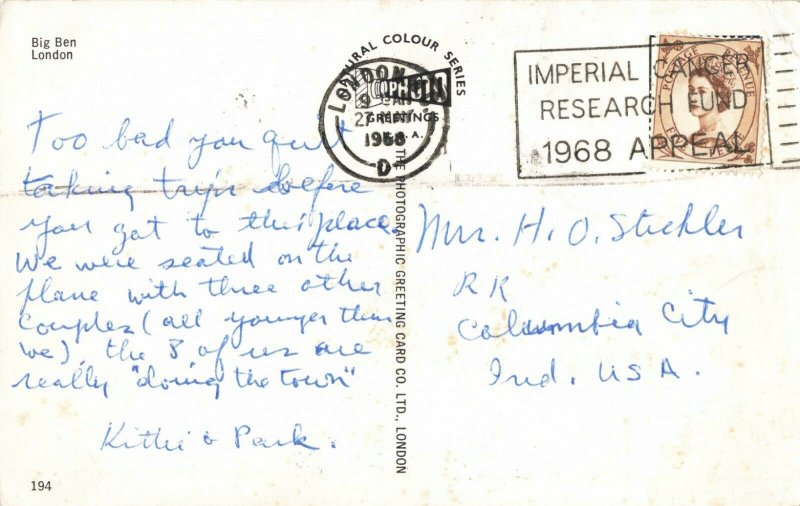 Big Ben
London
Too bad you quit
taking trips before
you got to this place.
We were seated on the
plane with three other
couples (all younger than
we), the 8 of us are
really "doing the town"
Kittie & Park.
194
NATURAL COLOUR SERIES
GREETINGS
THE PHOTOGRAPHIC GREETING CARD CO. LTD., LONDON
LONDON
9
27
1968
D
IMPERIAL CANCER
RESEARCH FUND
1968 APPEAL
POSTAGE REVENUE
Mrs. H. O. Stickler
RR
Columbia City
Ind. USA.